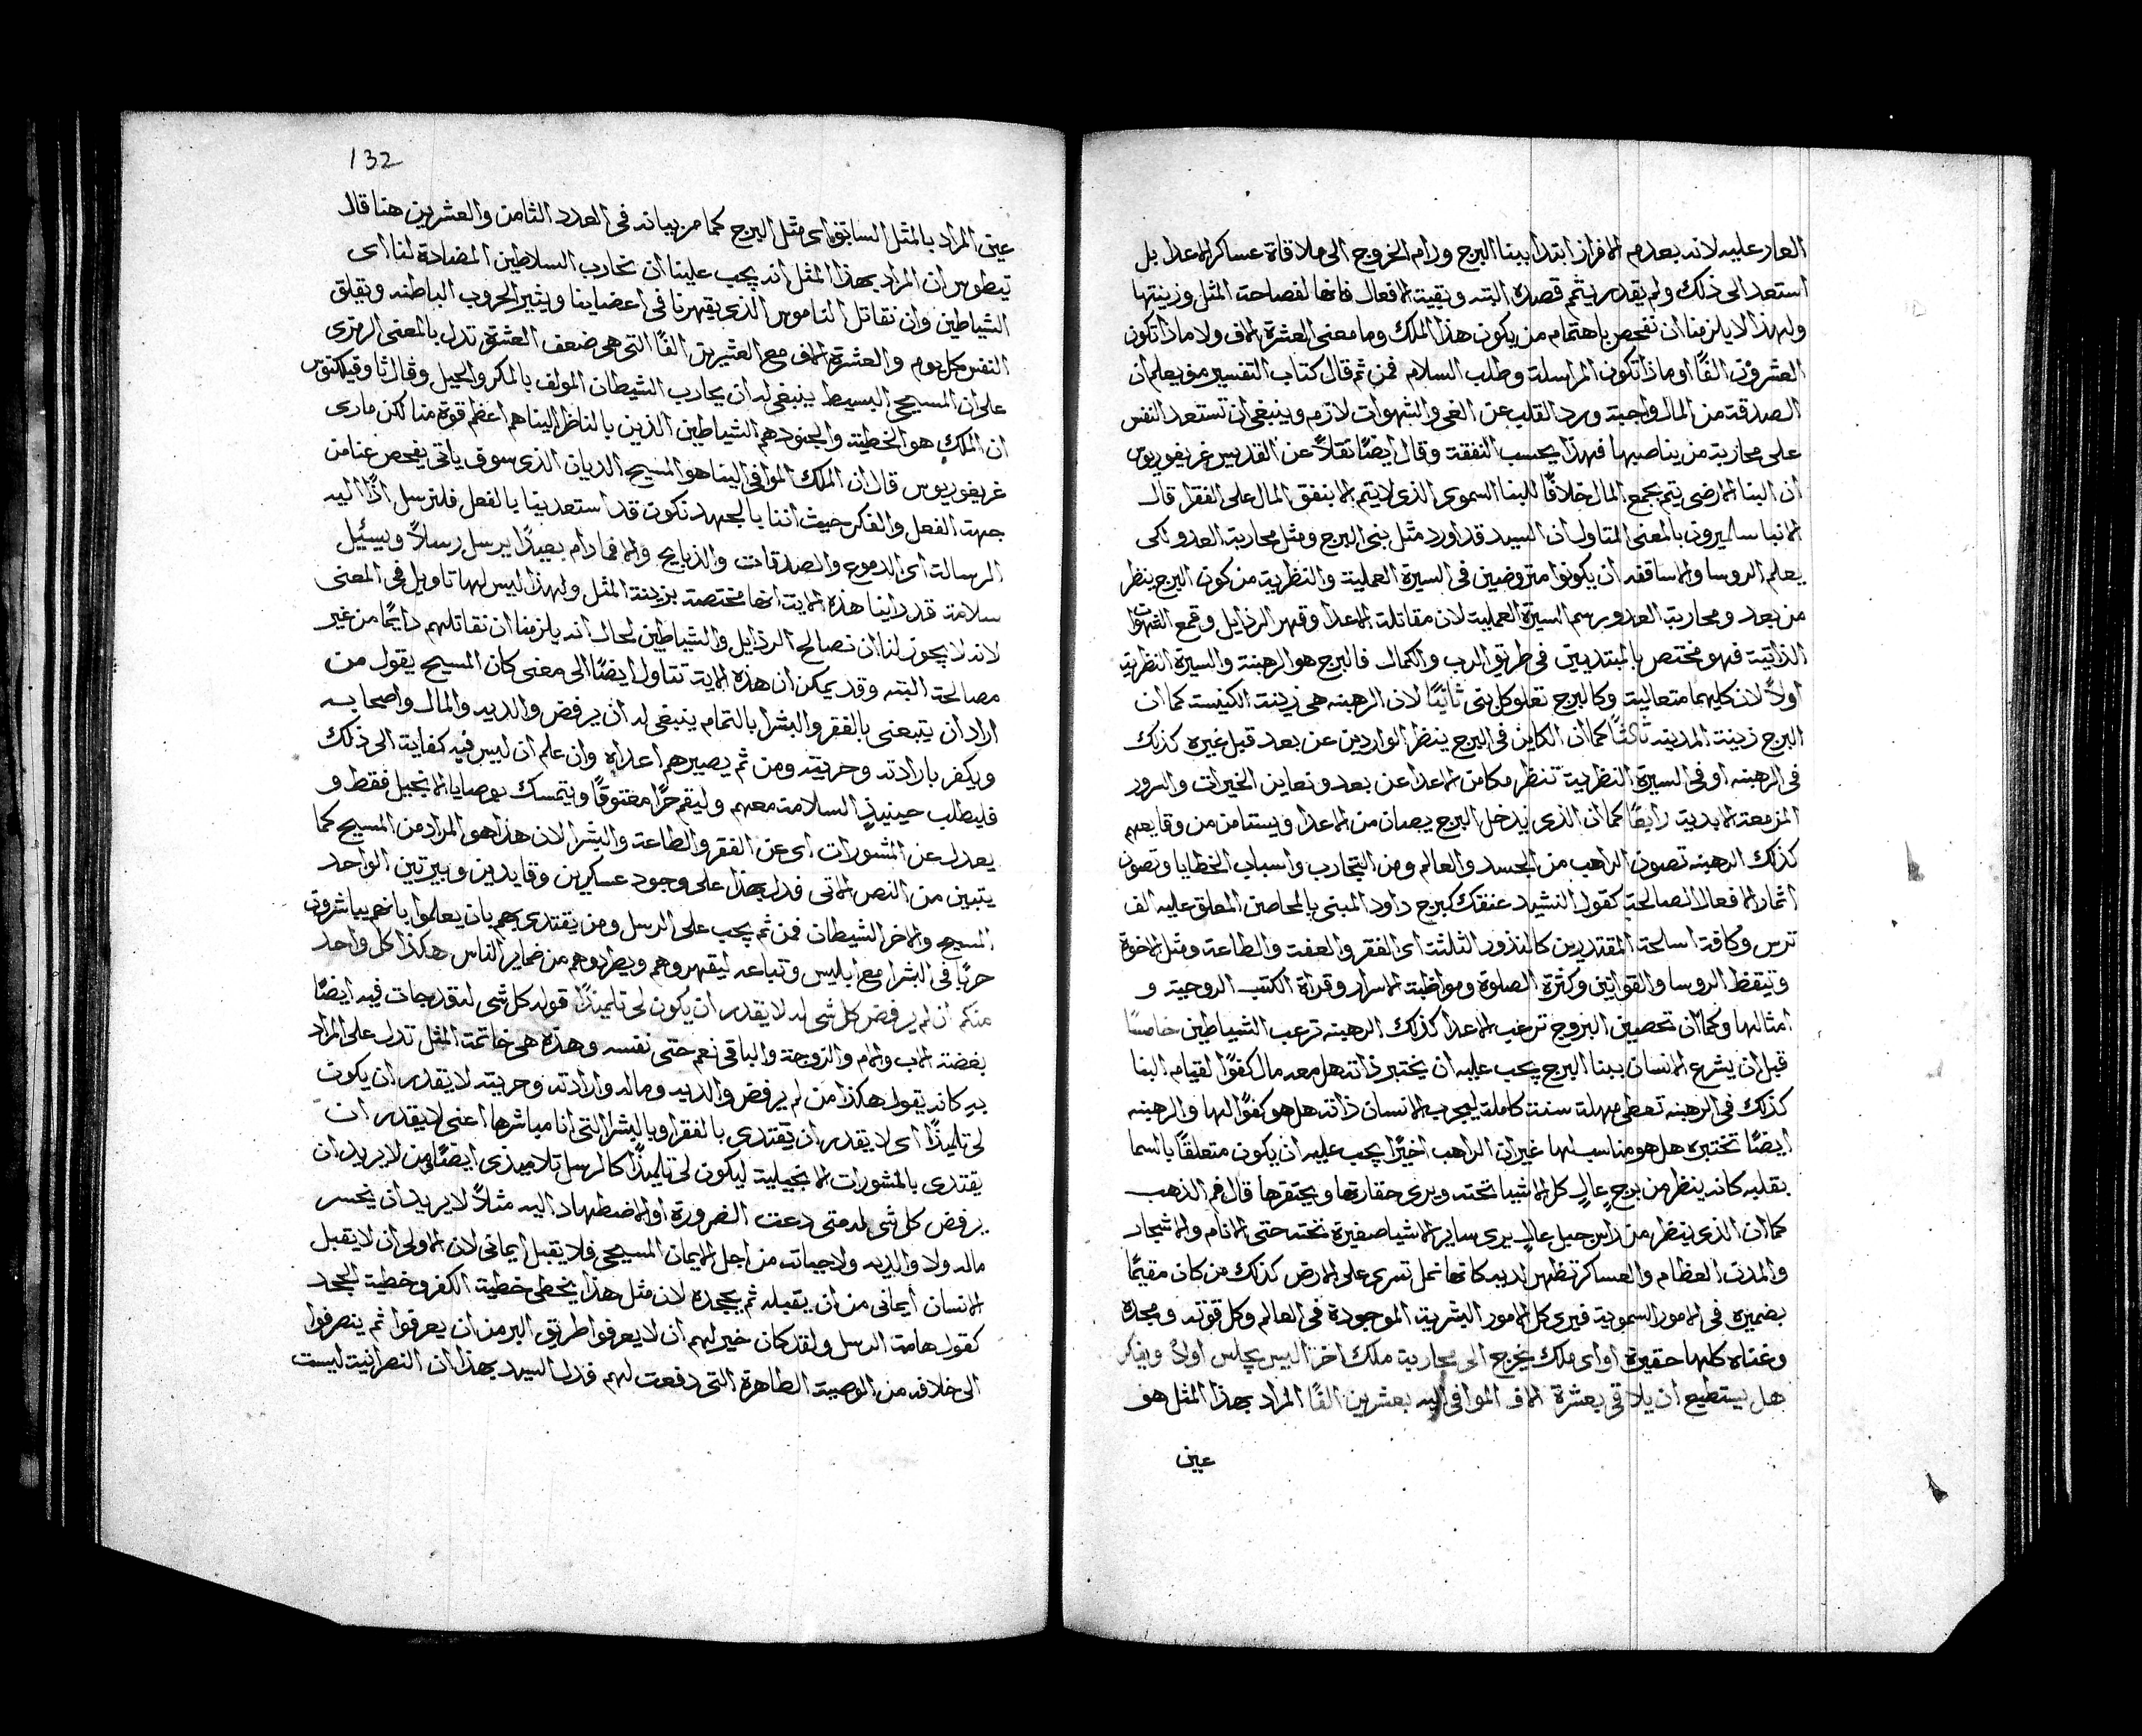 العار عليه لانه بعدم الافراز ابتدا ببنا البرج ورام الخروج الى ملاقاة عساكر الاعدا بل
استعد الى ذلك ولم يقدر يتم قصده البته وبقية الافعال فانها لفصاحة المثل وزينتها
ولهذا لا يلزمنا ان نفحص باهتمام من يكون هذا الملك وما معنى العشرة الاف ولا ماذا تكون
العشرون الفًا او ماذا تكون المراسلة وطلب السلام فمن ثم قال كتاب التفسير مويعلم ان
الصدقة من المال واجبة ورد القلب عن الغى والشهوات لازم وينبغى ان تستعد النفس
على محاربة من يناصبها فهذا يحسب النفقة وقال ايضًا نقلاً عن القديس غريغوريوس
ان البنا الارضى يتم بجمع المال خلافًا للبنا السموى الذى لا يتم الا بنفق المال على الفقرا قال
الانبا سالميرون بالمعنى المتاول ان السيد قد اورد مثل بنى البرج ومثل محاربة العدو لكى
يعلم الروسا والاساقفه ان يكونوا متروضين فى السيرة العملية والنظرية من كون البرج ينظر
من بعد ومحاربة العدو برسم السيرة العملية لان مقاتلة الاعدا وقهر الرذايل وقمع الشهوات
الذاتية فهو مختص بالمبتديين فى طريق الرب والكمال فالبرج هو الرهبنة والسيرة النظرية
اولاً لان كليهما متعالية وكالبرج تعلو كل بنى ثانيًا لان الرهبنه هى زينة الكنيسة كما ان
البرج زينة المدينه ثالثًا كما ان الكاين فى البرج ينظر الواردين عن بعد قبل غيره كذلك
فى الرهبنه او فى السيرة النظرية تنظر مكامن الاعدا عن بعد وتعاين الخيرات والسرور
المزمعة الابدية رابعًا كما ان الذى يدخل البرج يصان من الاعدا ويستامن من وقايعهم
كذلك الرهبنه تصون الراهب من الجسد والعالم ومن التجارب واسباب الخطايا وتصون
اثمار الافعال الصالحة كقول النشيد عنقك كبرج داود المبنى بالمحاصن المعلق عليه الف
ترس وكافة اسلحة المقتدرين كالنذور الثلثة اى الفقر والعفة والطاعة ومثل الاخوة
وتيقظ الروسا والقوانين وكثرة الصلوة ومواظبة الاسرار وقراة الكتب الروحية و
امثالها وكما ان تحصين البروج ترعب الاعدا كذلك الرهبنه ترعب الشياطين خامسًا
قبل ان يشرع الانسان ببنا البرج يجب عليه ان يختبر ذاته هل معه مال كفوًا لقيام البنا
كذلك فى الرهبنه تعطى مهلة سنة كاملة ليجرب الانسان ذاته هل هو كفوًا لها والرهبنه
ايضًا تختبره هل هو مناسب لها غير ان الراهب اخيرًا يجب عليه ان يكون متعلقًا بالسما
بقلبه كانه ينظر من برج عالٍ كل الاشيا تحته ويرى حقارتها ويحتقرها قال فم الذهب
كما ان الذى ينظر من راس جبل عالٍ يرى ساير الاشيا صغيرة تحته حتى الانام والاشجار
والمدن العظام والعساكر تظهر لديه كانها نمل تسرى على الارض كذلك من كان مقيمًا
بضميره فى الامور السموية فيرى كل الامور البشرية الموجودة فى العالم وكل قوته ومجده
وغناه كلها حقيرة او اى ملك يخرج الى محاربة ملك اخر اليس يجلس اولاً ويفكر
هل يستطيع ان يلاقى بعشرة الاف الموافى اليه بعشرين الفًا المراد بهذا المثل هو
عين
132
عين المراد بالمثل السابق اى مثل البرج كما مر بيانه فى العدد الثامن والعشرين هنا قال
تيطوس ان المراد بهذا المثل انه يجب علينا ان نحارب السلاطين المضادة لنا اى
الشياطين وان نقاتل الناموس الذى يقهرنا فى اعضاينا ويثير الحروب الباطنه ويقلق
النفس كل يوم والعشرة الاف مع العشرين الفًا التى هى ضعف العشرة تدل بالمعنى الرمزى
على ان المسيحى البسيط ينبغى له ان يحارب الشيطان المولف بالمكر والحيل وقال ثاوفيلكتوس
ان الملك هو الخطية والجنود هم الشياطين الذين بالناظر الينا هم اعظم قوة منا لكن مارى
غريغوريوس قال ان الملك الموافى الينا هو المسيح الديان الذى سوف ياتى يفحص عنا من
جهة الفعل والفكر حيث اننا بالجهد نكون قد استعدينا بالفعل فلنرسل اذًا اليه
الرسالة اى الدموع والصدقات والذبايح والا فما دام بعيدًا يرسل رسلاً ويسئل
سلامة قد راينا هذه الاية انها مختصة بزينة المثل ولهذا ليس لها تاويل فى المعنى
لانه لا يجوز لنا ان نصالح الرذايل والشياطين لحال انه يلزمنا ان نقاتلهم دايمًا من غير
مصالحة البته وقد يمكن ان هذه الاية تتاول ايضًا الى معنى كان المسيح يقول من
اراد ان يتبعنى بالفقر والبشرا بالتمام ينبغى له ان يرفض والديه والمال واصحابه
ويكفر بارادته وحريته ومن ثم يصيرهم اعداه وان علم ان ليس فيه كفاية الى ذلك
فليطلب حينيذٍ السلامة معهم وليقم حرًا معتوقًا ويتمسك بوصايا الانجيل فقط و
يعدل عن المشورات اى عن الفقر والطاعة والبشرا لان هذا هو المراد من المسيح كما
يتبين من النص الاتى فدل بهذا على وجود عسكرين وقايدين وبيرتين الواحد
المسيح والاخر الشيطان فمن ثم يجب على الرسل ومن يقتدى بهم بان يعلموا بانهم يباشرون
حربًا فى البشرا مع ابليس وتباعه ليقهروهم ويطردوهم من ضماير الناس هكذا كل واحد
منكم ان لم يرفض كل شى له لا يقدر ان يكون لى تلميذًا قوله كل شى له تدرجات فيه ايضًا
بغضة الاب والام والزوجة والباقى نعم حتى نفسه وهذه هى خاتمة المثل تدل على المراد
به كانه يقول هكذا من لم يرفض والديه وماله وارادته وحريته لا يقدر ان يكون
لى تلميذًا اى لا يقدر ان يقتدى بالفقر او بالبشرا التى انا مباشرها اعنى لا يقدر ان
يقتدى بالمشورات الانجيلية ليكون لى تلميذًا كالرسل تلاميذى ايضًا من لا يريد ان
يرفض كل شى له متى دعت الضرورة او الاضطهاد اليه مثلاً لا يريد ان يخسر
ماله ولا والديه ولا حياته من اجل الايمان المسيحى فلا يقبل ايمانى لان الاولى ان لا يقبل
الانسان ايمانى من ان يقبله ثم يجحده لان مثل هذا يخطى خطية الكفر وخطية الجحد
كقول هامة الرسل ولقد كان خير لهم ان لا يعرفوا طريق البر من ان يعرفوا ثم ينصرفوا
الى خلافه من الوصية الطاهرة التى دفعت لهم فدل السيد بهذا ان النصرانية ليست